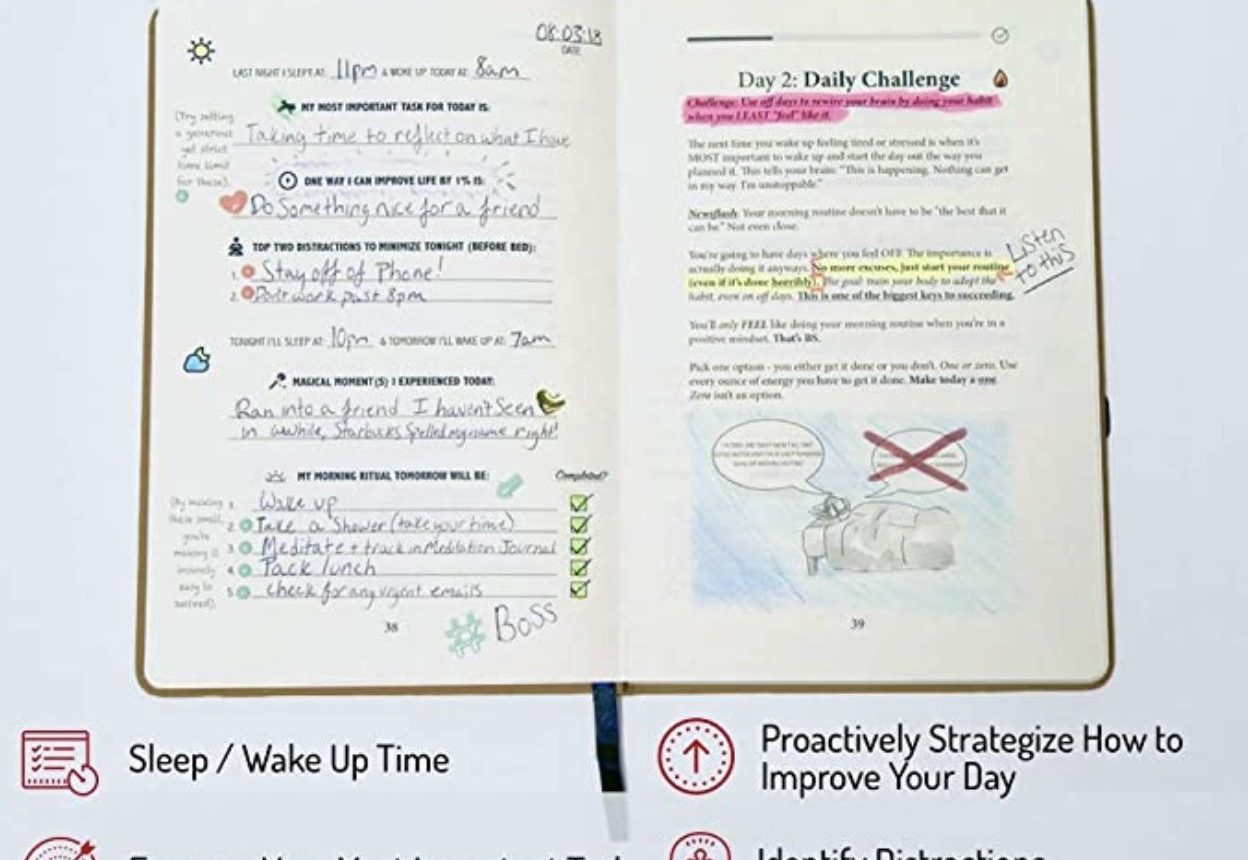 08:03:18
DATE
LAST NIGHT I SLEPT AT: 11pm & WOKE UP TODAY AT: 8am
MY MOST IMPORTANT TASK FOR TODAY IS:
Taking time to reflect on what I have
(Try setting
a generous
yet strict
time limit
for these).
ONE WAY I CAN IMPROVE LIFE BY 1% IS:
Do Something nice for a friend
TOP TWO DISTRACTIONS TO MINIMIZE TONIGHT (BEFORE BED):
1. Stay off of Phone!
2. Don't work past 8pm
TONIGHT I'LL SLEEP AT: 10pm & TOMORROW I'LL WAKE UP AT: 7am
MAGICAL MOMENT(S) I EXPERIENCED TODAY:
Ran into a friend I haven't Seen
in awhile, Starbucks Spelled my name right!
MY MORNING RITUAL TOMORROW WILL BE:
Completed?
1. Wake up
2. Take a Shower (take your time)
3. Meditate + track in Meditation Journal
4. Pack lunch
5. check for any urgent emails
(By making
these small,
you're
making it
easy to
succeed).
38
# Boss
Day 2: Daily Challenge
Challenge: Use off days to rewire your brain by doing your habit
when you LEAST "feel" like it.
The next time you wake up feeling tired or stressed is when it's
MOST important to wake up and start the day out the way you
planned it. This tells your brain: "This is happening. Nothing can get
in my way. I'm unstoppable."
Newsflash: Your morning routine doesn't have to be "the best that it
can be" Not even close.
You're going to have days where you feel OFF. The importance is
actually doing it anyways. No more excuses, just start your routine
(even if it's done horribly). The goal: train your body to adapt the
habit, even on off days. This is one of the biggest keys to succeeding.
Listen
to this
You'll only FEEL like doing your morning routine when you're in a
positive mindset. That's BS.
Pick one option - you either get it done or you don't. One or zero. Use
every ounce of energy you have to get it done. Make today a one.
Zero isn't an option.
39
Sleep / Wake Up Time
Proactively Strategize How to
Improve Your Day
Identify Distractions